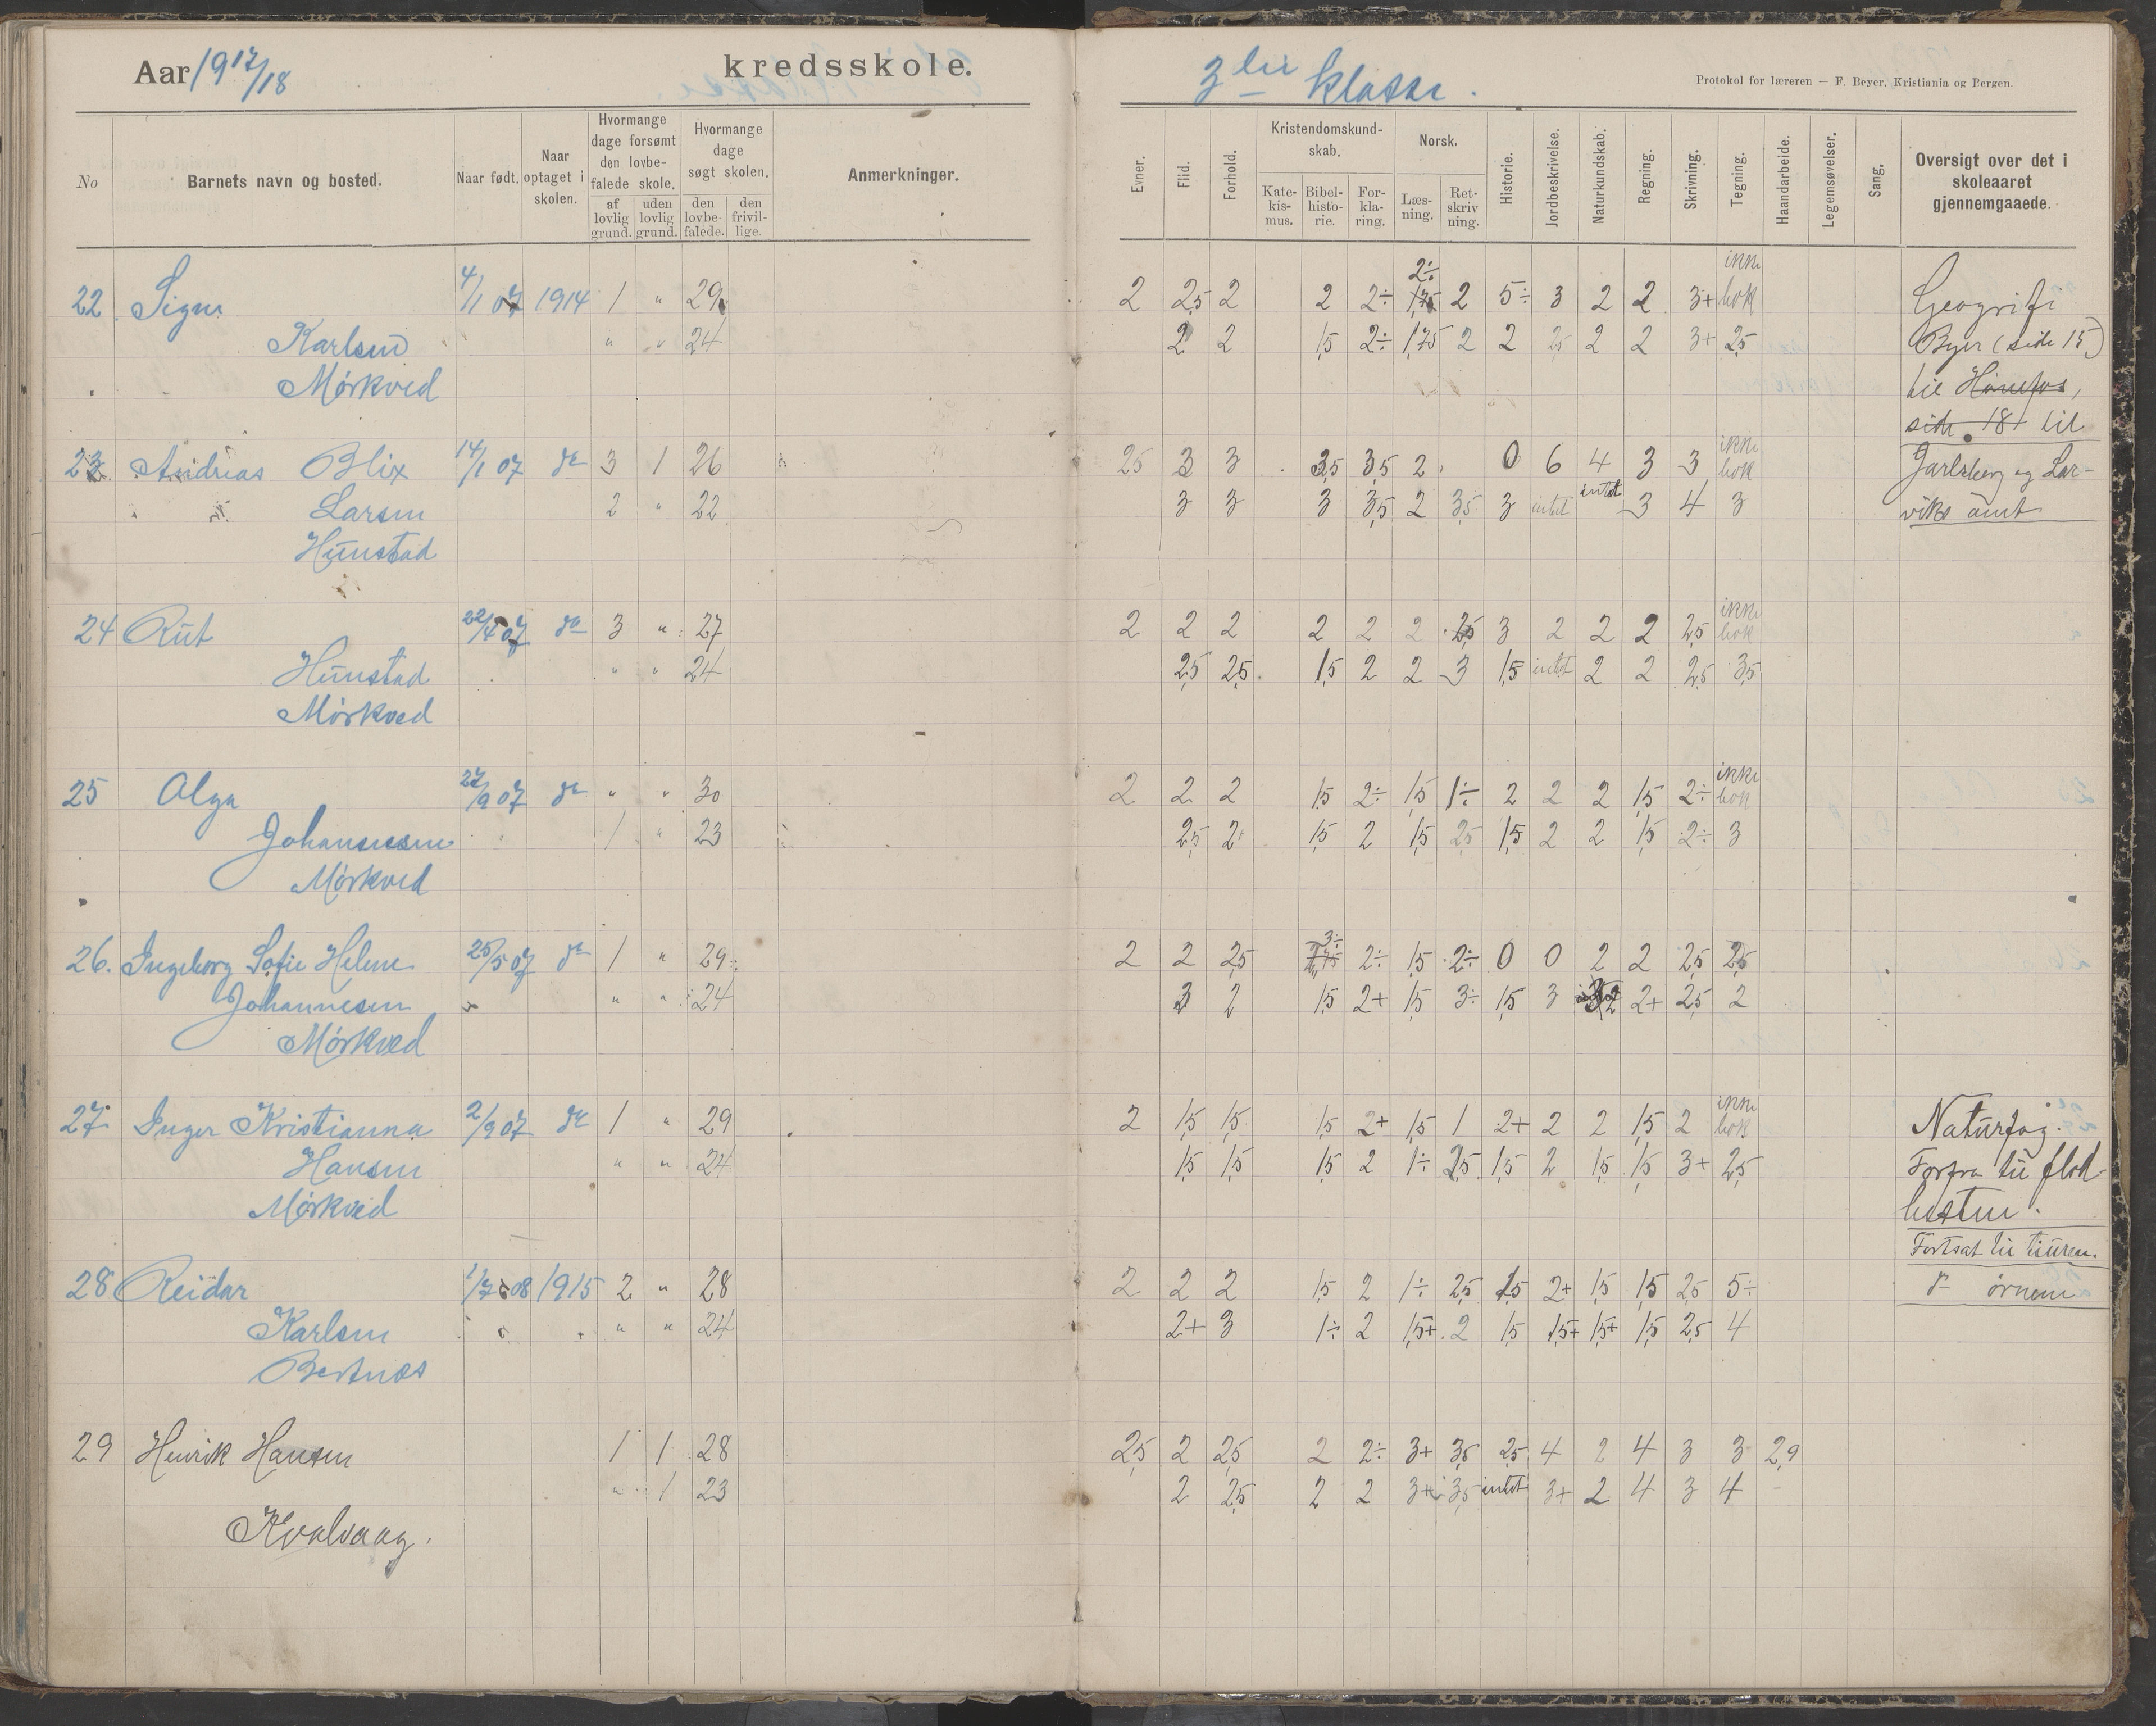 Aar 1917/18 kredsskole.
3die klasse.
Protokol for læreren — F. Beyer, Kristiania og Bergen.
No Barnets navn og bosted. Naar født. Naar optaget i skolen. Hvormange dage forsømt den lovbefalede skole. af lovlig grund. uden lovlig grund. Hvormange dage søgt skolen. den lovbefalede. den frivillige. Anmerkninger.
Evner. Flid. Forhold. Kristendomskundskab. Katekismus. Bibelhistorie. Forklaring. Norsk. Læsning. Retskrivning. Historie. Jordbeskrivelse. Naturkundskab. Regning. Skrivning. Tegning. Haandarbeide. Legemsøvelser. Sang. Oversigt over det i skoleaaret gjennemgaaede.
22 Signe 4/1 07 1914 1 " 29 2 2,5 2 2 2÷ 2÷ 2 5÷ 3 2 2 3+ ikke bok Geografi
Karlsen " " 24 2 2 1,5 2÷ 1,75 2 2 2,5 2 2 3+ 2,5 Byer (side 15)
Mørkved til Hønefos,
side 18+ til
23 Andreas Blix 14/1 07 do 3 1 26 2,5 3 3 3,5 3,5 2 0 6 4 3 3 ikke bok Jarlsberg og Lar-
Larsen 2 " 22 3 3 3 3,5 2 3,5 3 intet intet 3 4 3 viks amt
Hunstad
24 Rut 22/4 07 do 3 " 27 2 2 2 2 2 2 2,5 3 2 2 2 2,5 ikke bok
Hunstad " " 24 2,5 2,5 1,5 2 2 3 1,5 intet 2 2 2,5 3,5
Mørkved
25 Olga 27/9 07 do " " 30 2 2 2 1,5 2÷ 1,5 1÷ 2 2 2 1,5 2÷ ikke bok
Johannesen 1 " 23 2,5 2 1,5 2 1,5 2,5 1,5 2 2 1,5 2÷ 3
Mørkved
26. Ingeborg Sofie Helene 25/5 07 do 1 " 29 2 2 2,5 3÷ 2÷ 1,5 2÷ 0 0 2 2 2,5 2,5
Johannesen " " 24 3 2 1,5 2+ 1,5 3÷ 1,5 3 2 2+ 2,5 2
Mørkved
27. Inger Kristianna 2/9 07 do 1 " 29 2 1,5 1,5 1,5 2+ 1,5 1 2+ 2 2 1,5 2 ikke bok Naturfag.
Hansen " " 24 1,5 1,5 1,5 2 1÷ 2,5 1,5 2 1,5 1,5 3+ 2,5 Forfra til flod-
Mørkved hesten.
Fortsat til tiuren.
28 Reidar 1/7 08 1915 2 " 28 2 2 2 1,5 2 1÷ 2,5 1,5 2+ 1,5 1,5 2,5 5÷ do ørnene
Karlsen " " 24 2+ 3 1÷ 2 1,5+ 2 1,5 1,5+ 1,5+ 1,5 2,5 4
Bertnes
29 Henrik Hansen 1 1 28 2,5 2 2,5 2 2÷ 3+ 3,5 2,5 4 2 4 3 3 2,9
" 1 23 2 2,5 2 2 3+ 3,5 intet 3+ 2 4 3 4 -
Kvalvaag.